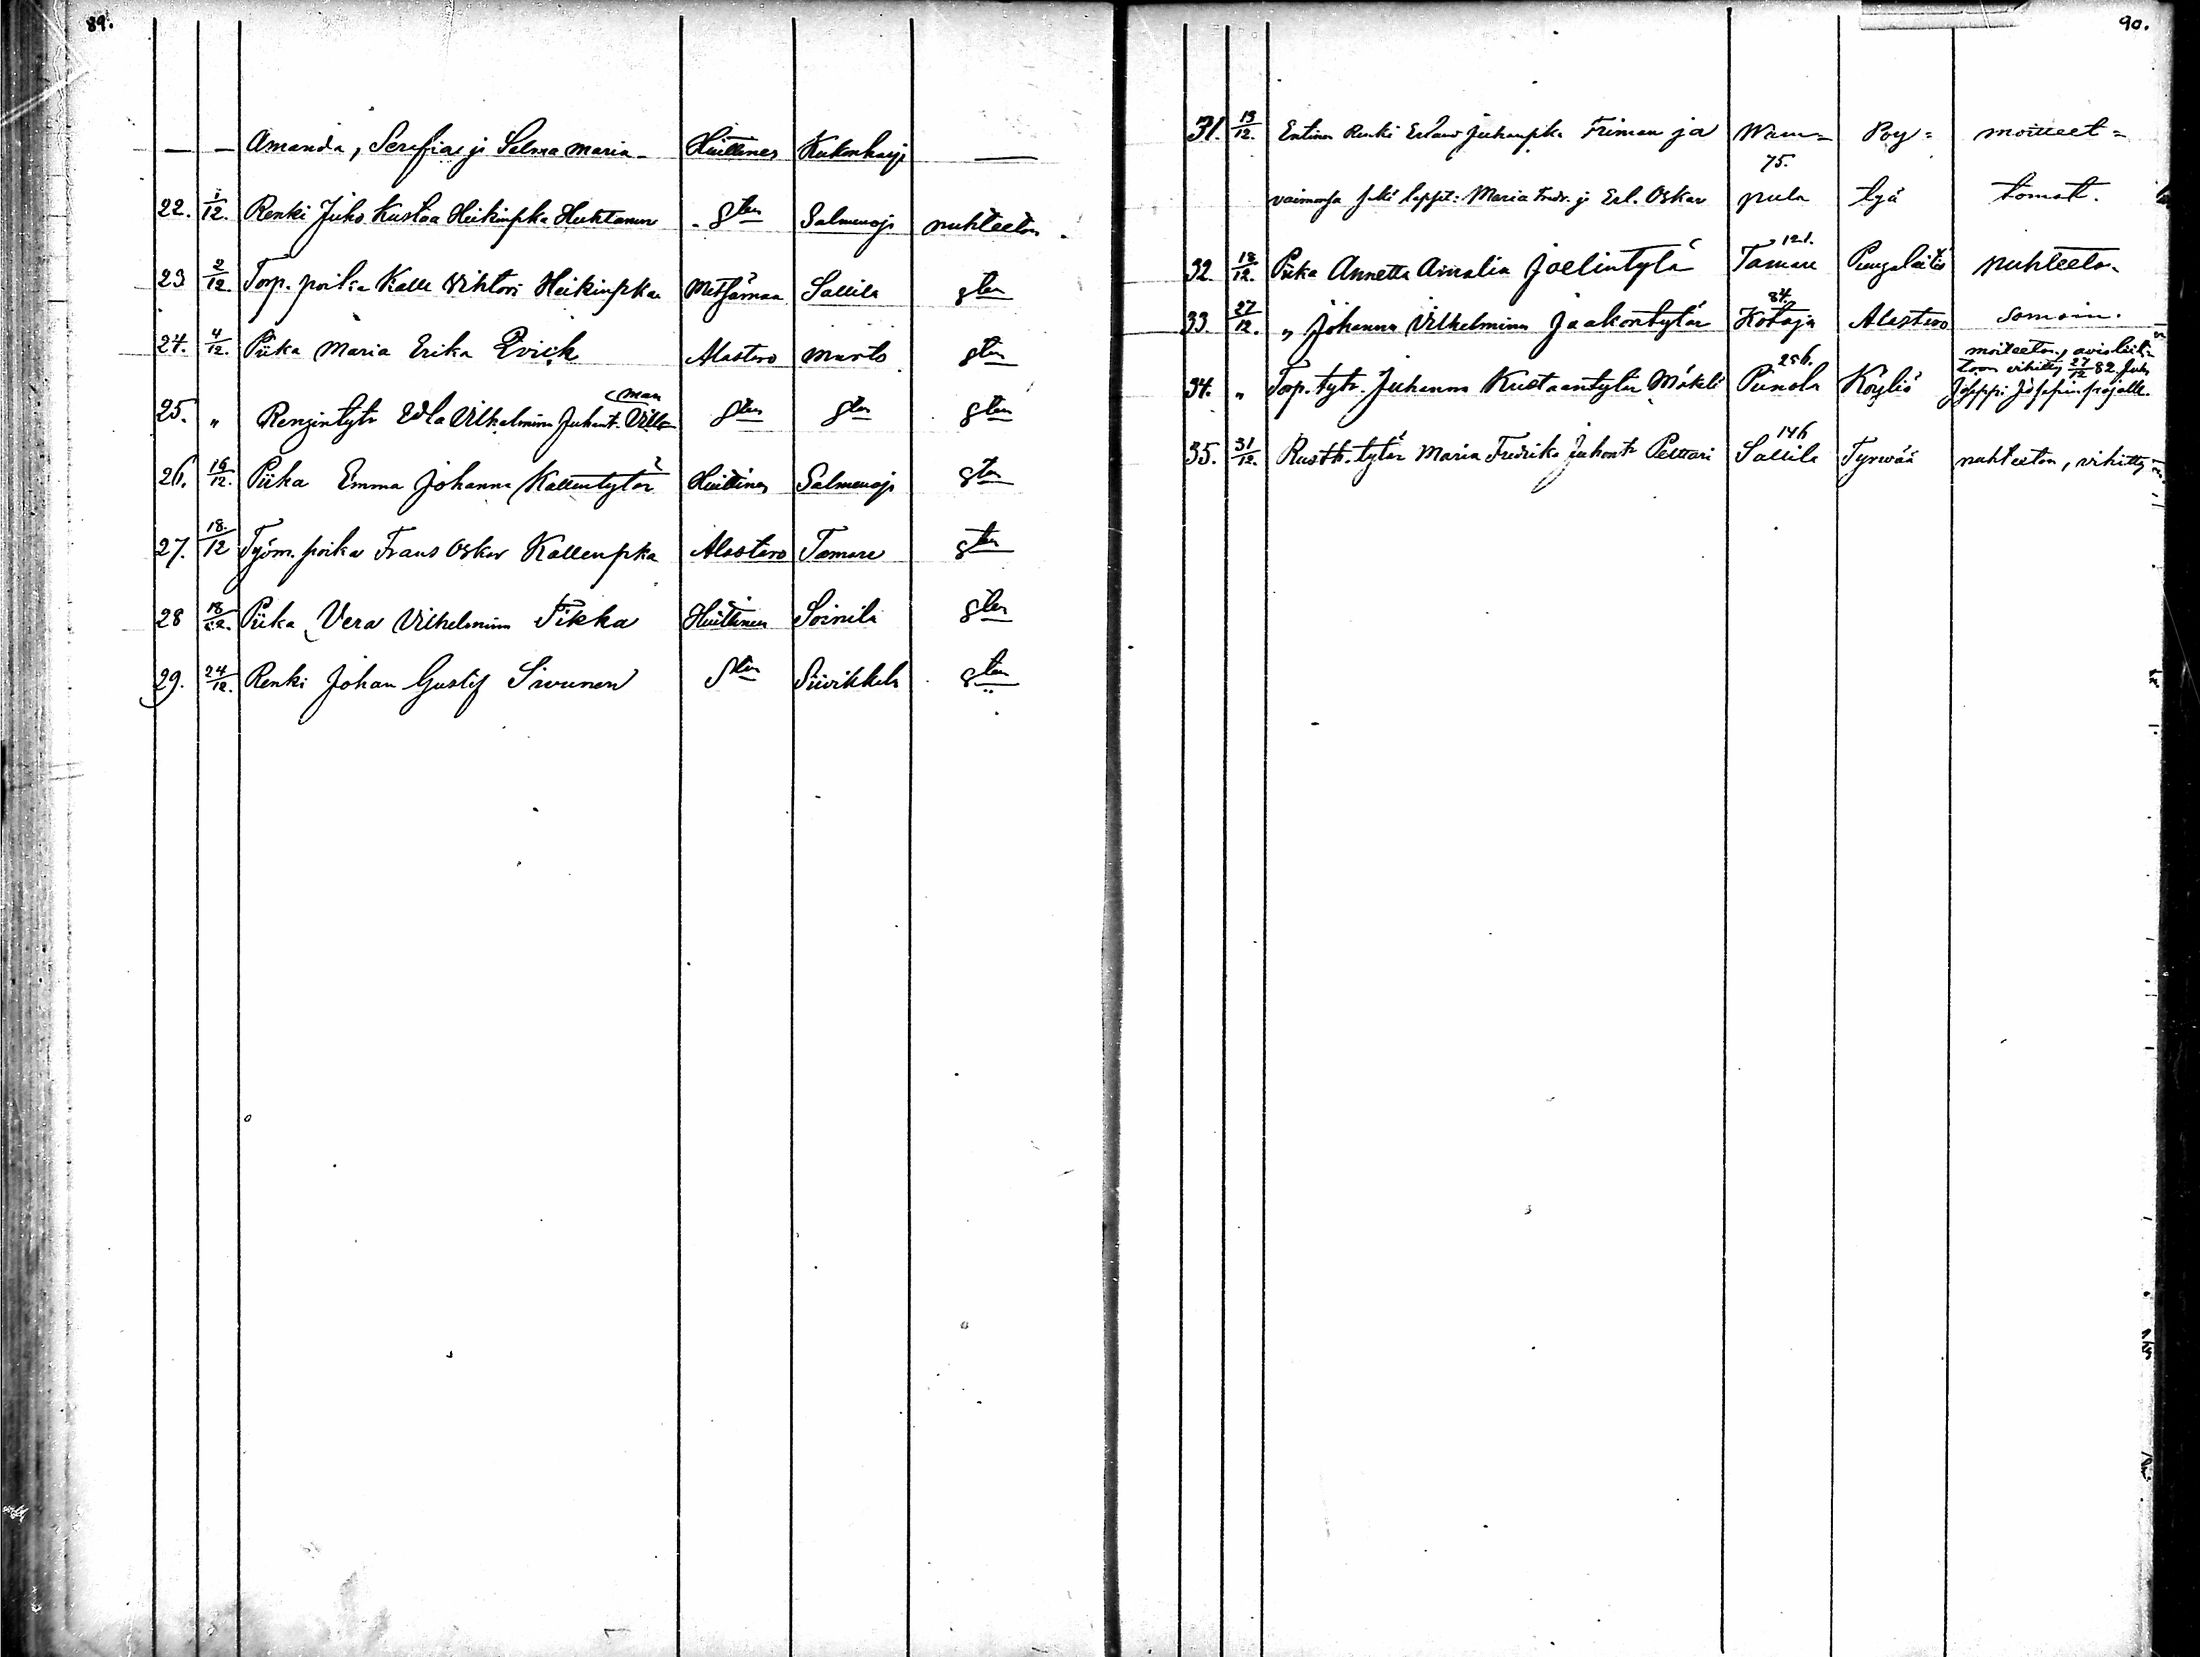 89.
— — Amanda, Serafia ja Selma Maria — Huittinen Kukonharja —
22. 1/12. Renki Juho Kustaa Heikinpka Huhtanen Sten Salmenoja nuhteeton.
23 2/12. Torp. poika Kalle Vihtori Heikinpka Metsämaa Sallila Sten
24. 4/12. Piika Maria Erika Qvick Alastaro Murto Sten
man
25. „ Rengintytr Edla Vilhelmina Juhont. Sten Sten Sten
26. 16/12. Piika Emma Johanna Kallentytär Huittinen Salmenoja Sten
27. 18./12 Työm. poika Frans Oskar Kallenpka Alastaro Tamare Sten
28 18/12. Piika Vera Vilhelmina Pikka Huittinen Soinila Sten
29. 24/12. Renki Johan Gustif Sivunen Sten Suvikkala Sten
90.
31. 13/12. Entinen Renki Erland Juhanpka Friman ja Wam= Pöy= moitteet=
75.
vaimonsa sekä lapset: Maria Fredr. ja Erl. Oskar pula tyä tomat.
121.
32. 18/12. Piika Annetta Amalia Joelintytä Tamare Punga laitio nuhteeton
84.
33. 27/12. „ Johanna Vilhelmina Jaakontytär Kotoja Alastaro samoin.
256. moiteeton, aviosäät=
34. „ Torp. tytr. Juhanna Kustaantytär Mäkelä Punola Köyliö toon vihitty 27/12 82 Juho
Joseppi Josepinpojalle.
146
35. 31/12. Rusth. tytär Maria Fredrika Juhontr Pelttari Sallila Tyrwää nuhteeton, vihitty